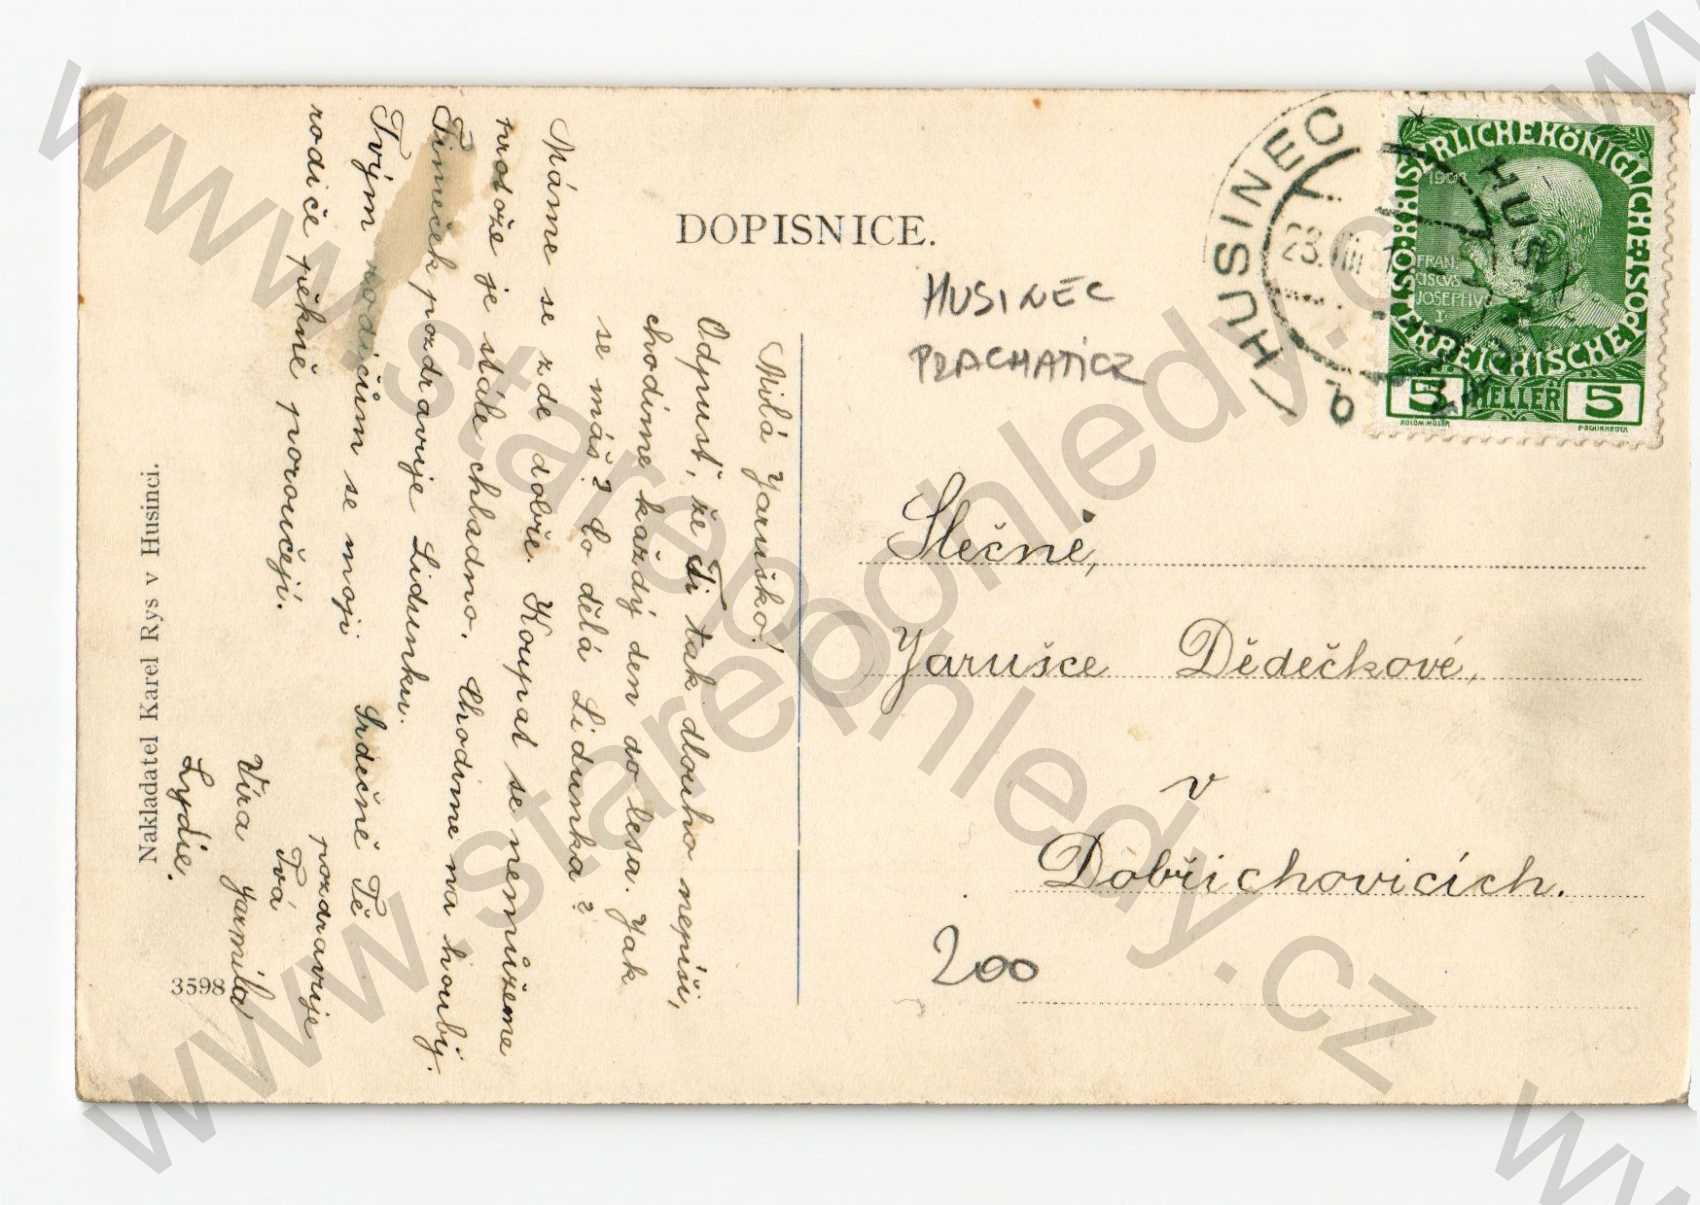 DOPISNICE.
HUSINEC
PRACHATICE
HUSINEC
28.VIII
KAISERLICHE KÖNIGLICHE
ÖSTERREICHISCHE POST
1908
FRAN-
CISCVS
JOSEPHVS
I
5 HELLER 5
Slečně,
Jarušce Dědečkové,
v
Dobřichovicích.
200
Milá Jaruško!
Odpusť, že Ti tak dlouho nepíši,
chodíme každý den do lesa. Jak
se máš? Co dělá Lidunka?
Máme se zde dobře. Koupat se nemůžeme
protože je stále chladno. Chodíme na houby.
pozdravuje Lidunku.
Tvým rodičům se moji
rodiče pěkně poroučejí.
Srdečně Tě
pozdravuje
Tvá
Víra Jarmila
Lydie.
Nakladatel Karel Rys v Husinci.
3598
www.starepohledy.cz
www.starepohledy.cz